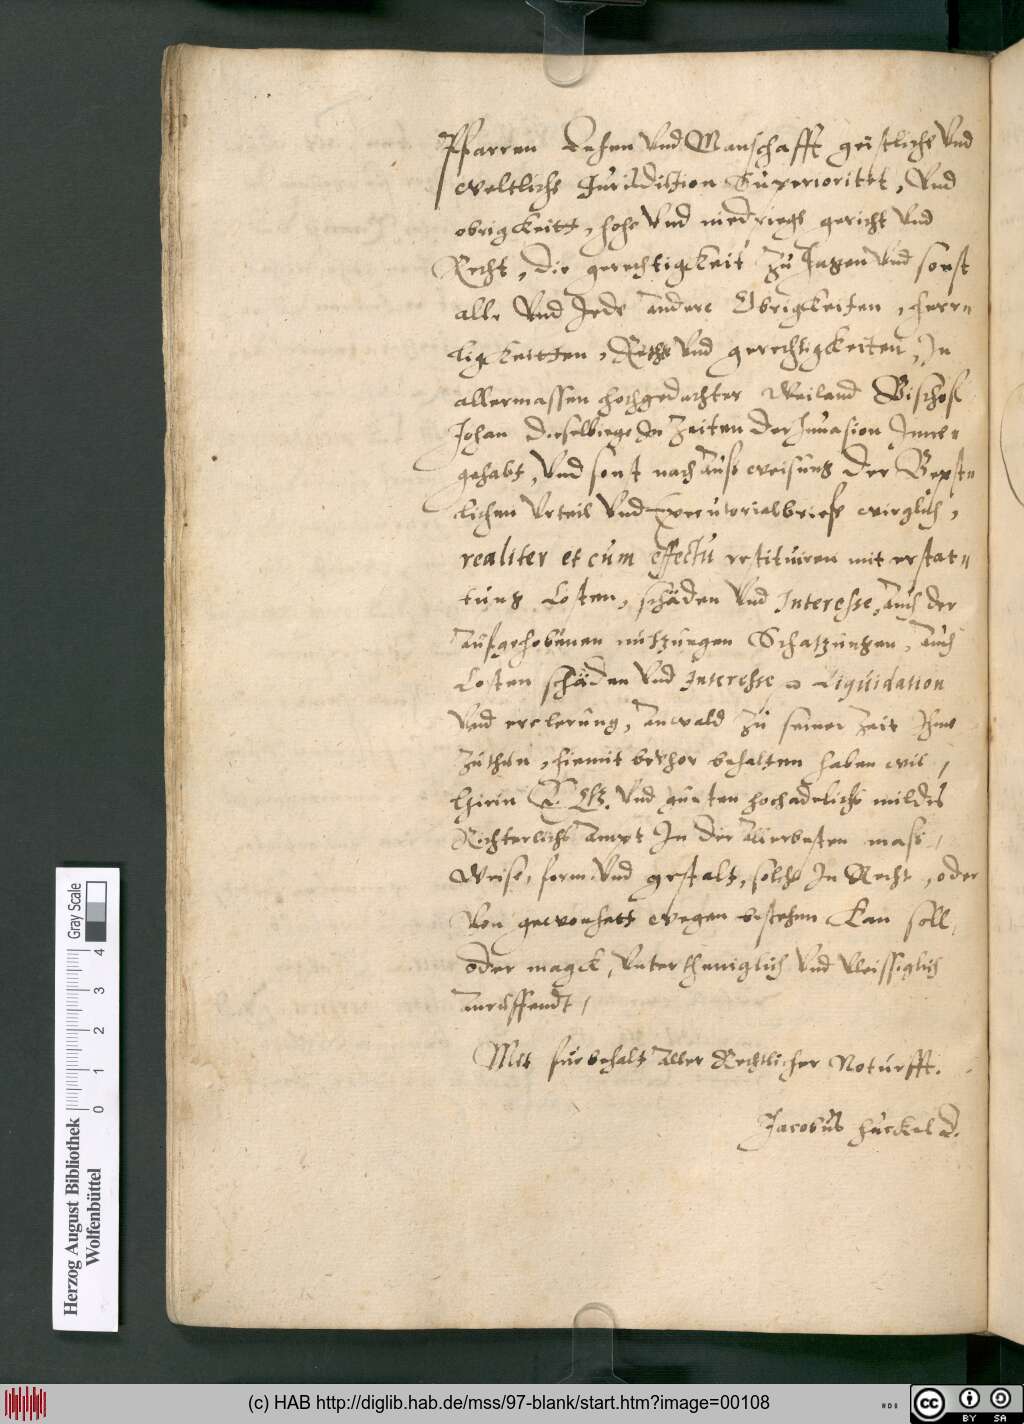 Pfarren Lehen Vnd Manschafft geistliche Vnd
weltliche Jurisdiction Superioritet, Vnd
obrigkeitt, hohe Vnd niedriege gericht Vnd
Recht, die gerechtigckeit Zu Jagen Vnd sonst
alle Vnd Jede andere Obrigckeiten, herr=
ligckeitten, Rechte Vnd gerechtigckeiten, In
allermassen hochgedachter Weiland Bischof
Johan dieselbiege Zeiten der Inuasion Inne=
gehabt, Vnd sonst nach ausweisung der Bepst=
lichen Vrteil Vnd Executorialbriefe wirglich,
realiter et cum effectu restituiren mit erstat=
tung Costen, schäden Vnd Interesse, Auch der
aufgehobenen nutzungen Schatzungen, Auch
Costen schäden Vnd Interesse Liquidation
Vnd erclerung, Anwald Zu seiner Zeit Ihme
Zuthun, hiemit beuhor behalten haben wil,
Hirin E. Vnd gunsten hochadelichs mildes
Richterlichs Ampt In der allerbesten mass,
Weise, form Vnd gestalt, solchs In Recht, oder
Von gewonheit wegen bestehen Can soll,
oder magck, Vnterthaniglich Vnd Vleissiglich
anruffendt,
Mit furbehalt aller Rechtlicher Noturfft.
Jacobus Huckel D.
Herzog August Bibliothek
Wolfenbüttel
0 1 2 3 4 Gray Scale
(c) HAB http://diglib.hab.de/mss/97-blank/start.htm?image=00108
cc BY SA